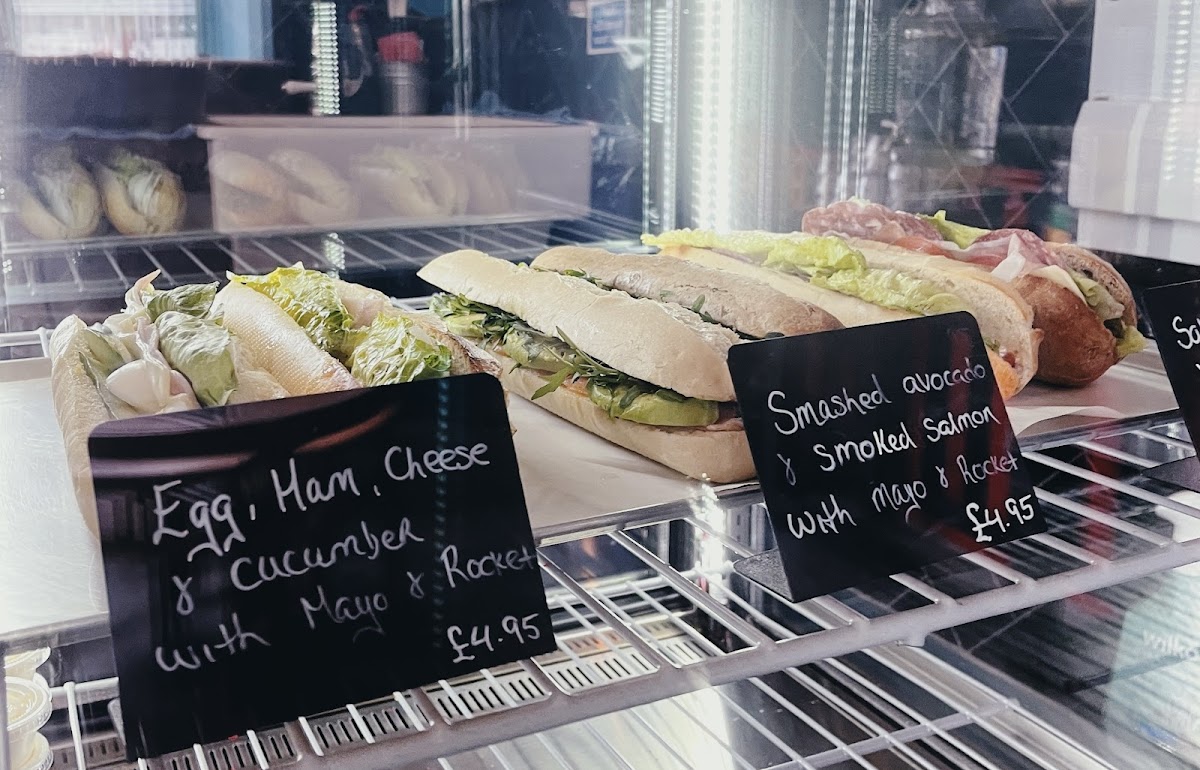 Egg, Ham, Cheese
& Cucumber
with Mayo & Rocket
£4.95
Smashed avocado
& smoked salmon
with mayo & Rocket
£4.95